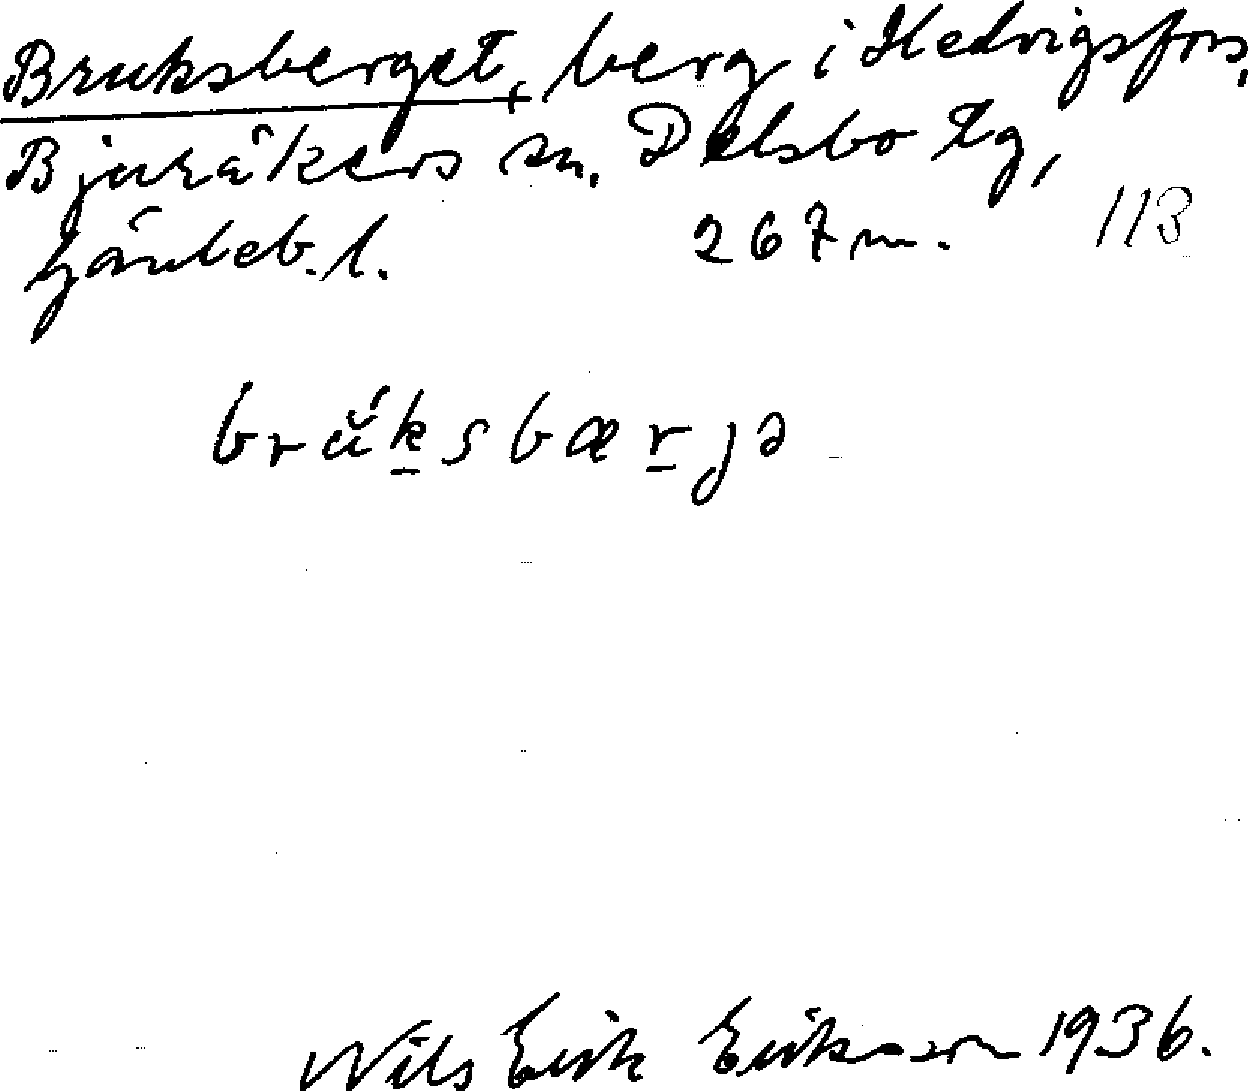 Bruksberget, berg i Hedvigsfors,
Bjuråkers sn. Delsbo tg,
Gävleb. l. 267 m. 113
brŭ́ksbærjə
Nils Erik Eriksson 1936.